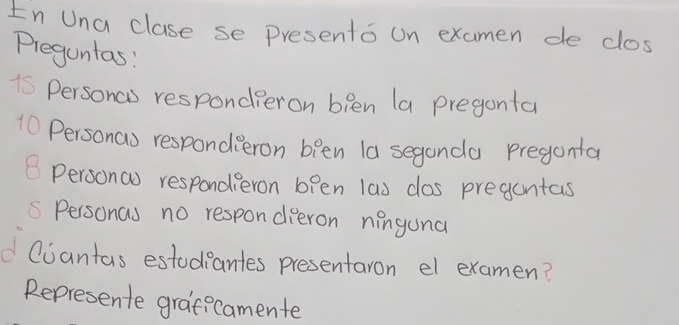 En Una clase se presentó un examen de dos
Preguntas:
15 Personas respondieron bien la pregunta
10 Personas respondieron bien la segunda pregunta
8 personas respondieron bien las dos preguntas
5 Personas no respondieron ninguna
¿Cúantas estudiantes presentaron el examen?
Represente gráficamente